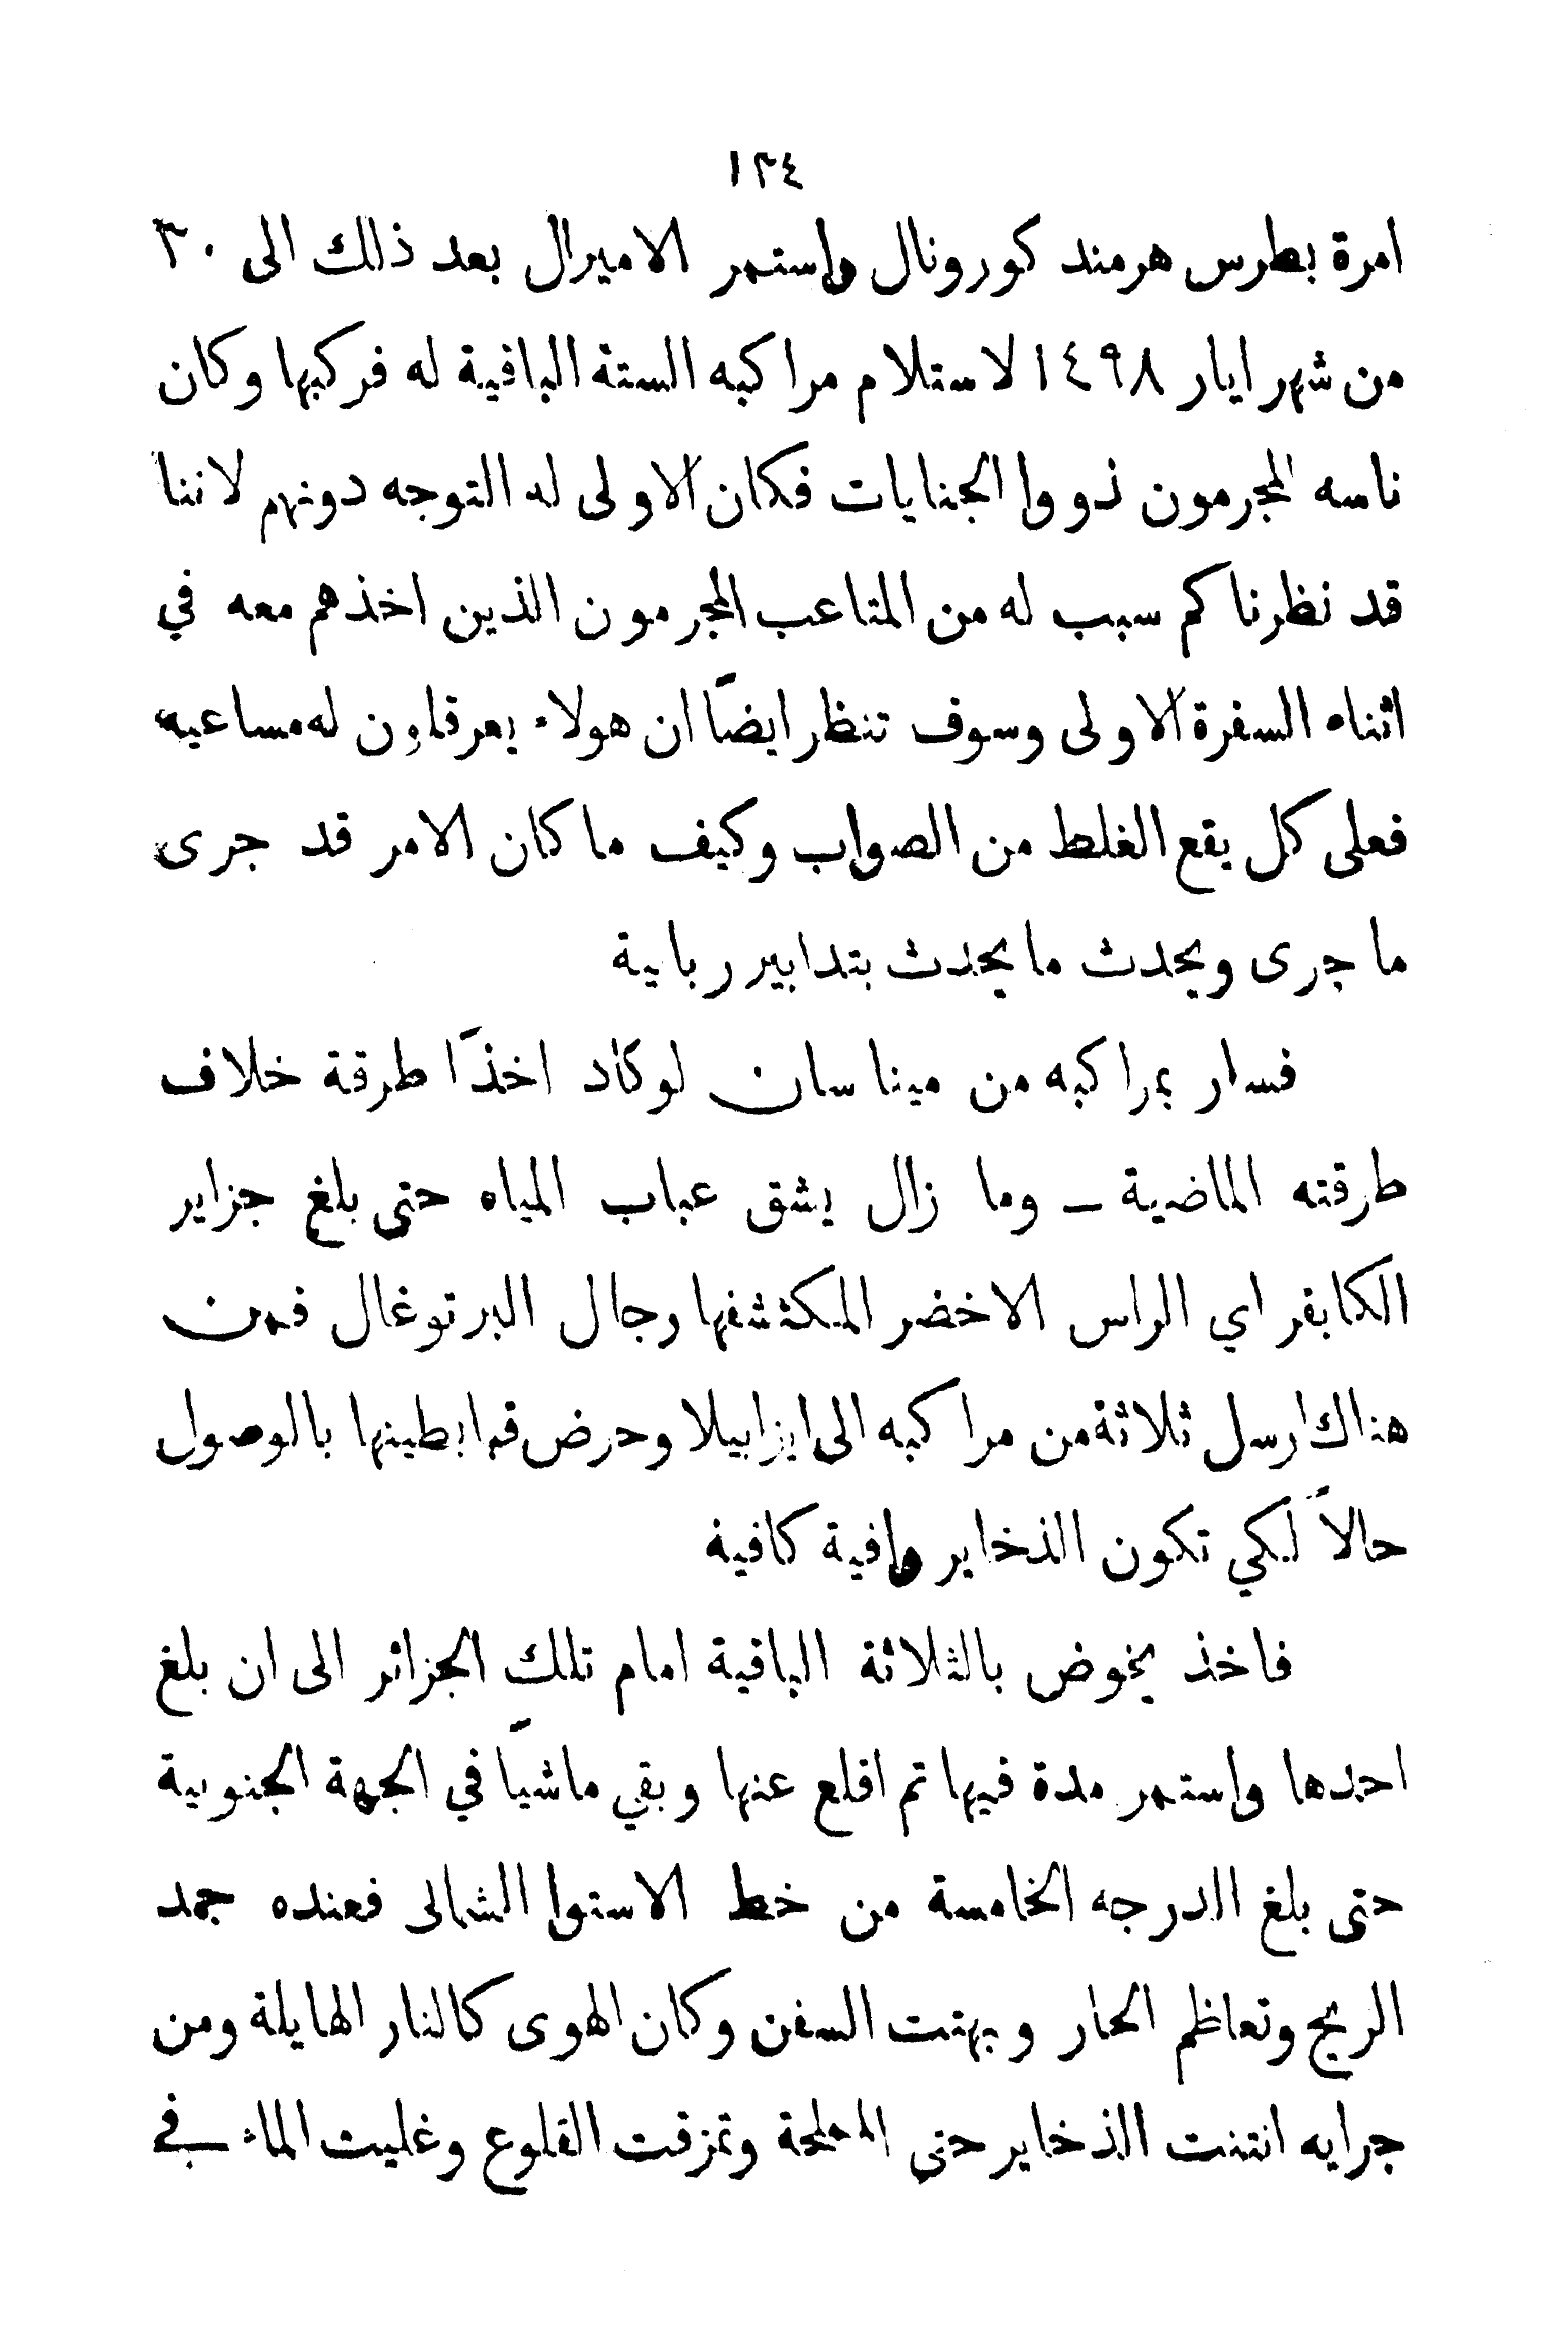 ١٣٤
امرة بطرس هرمند كورونال واستمر الاميرال بعد ذلك الى ٣٠
من شهر ايار ١٤٩٨ لاستلام مراكبه الستة الباقية له فركبها وكان
ناسه المجرمون ذووا الجنايات فكان الاولى له التوجه دونهم لاننا
قد نظرنا كم سبب له من المتاعب المجرمون الذين اخذهم معه في
اثناء السفرة الاولى وسوف تنظر ايضًا ان هولاء يعرقلون له مساعيه
فعلى كل يقع الغلط من الصواب وكيف ما كان الامر قد جرى
ما جرى ويحدث ما يحدث بتدابير ربانية
فسار بمراكبه من مينا سان لوكاد اخذًا طرقة خلاف
طرقته الماضية – وما زال يشق عباب المياه حتى بلغ جزاير
الكابفر اي الراس الاخضر المكتشفها رجال البرتوغال فمن
هناك ارسل ثلاثة من مراكبه الى ايزابيلا وحرض قبابطينها بالوصول
حالاً لكي تكون الذخاير وافية كافية
فاخذ يخوض بالثلاثة الباقية امام تلك الجزائر الى ان بلغ
احدها واستمر مدة فيها تم اقلع عنها وبقي ماشيًا في الجهة الجنوبية
حتى بلغ الدرجه الخامسة من خط الاستوا الشمالى فعنده جمد
الريح وتعاظم الحار وبهتت السفن وكان الهوى كالنار الهايلة ومن
جرايه انتنت الذخاير حتى المملحة وتمزقت القلوع وغليت الماء في